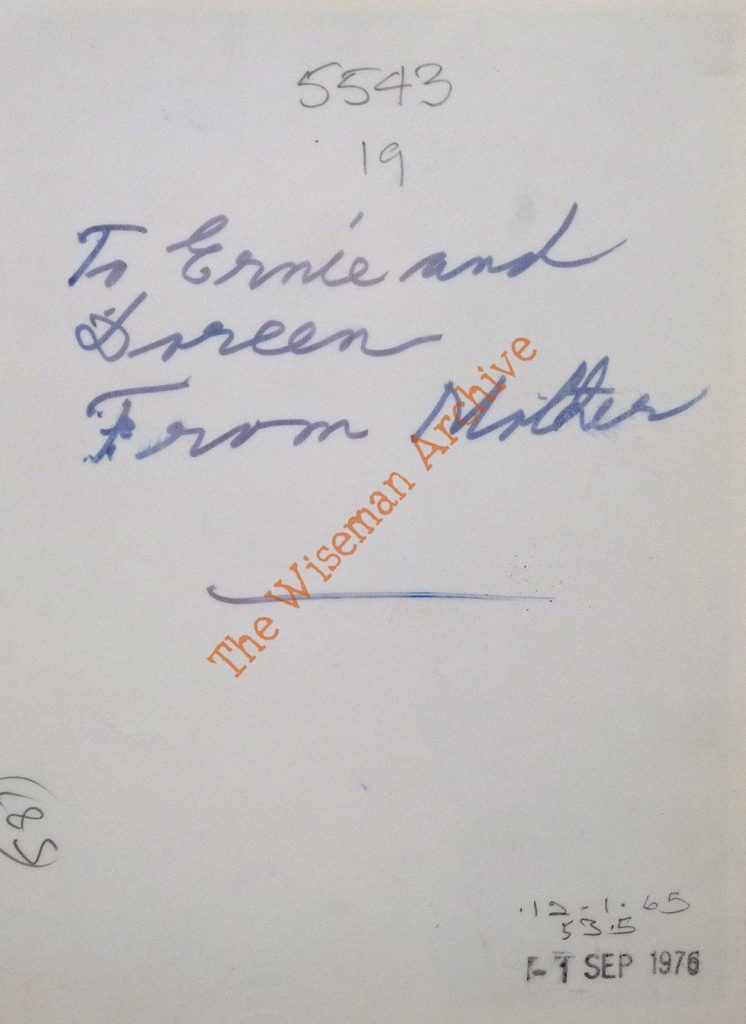 5543
19
To Ernie and
Doreen
From Mother
The Wiseman Archive
12-1.65
53.5
1 SEP 1976